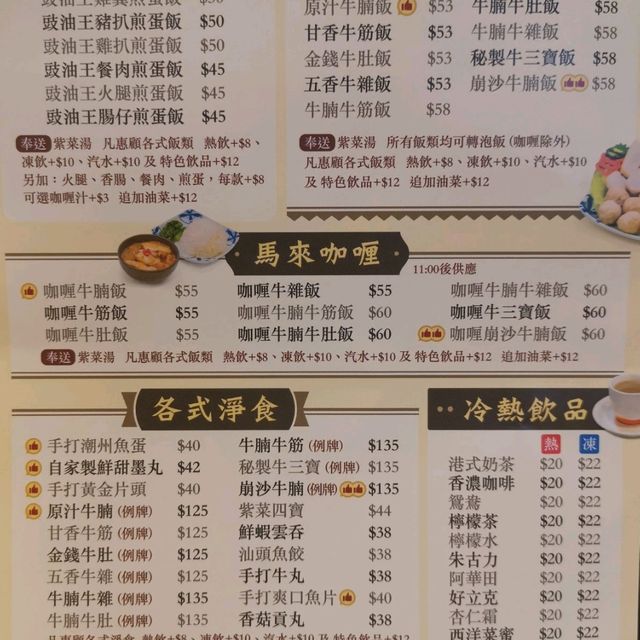 豉油王雞翼煎蛋飯 $50
豉油王豬扒煎蛋飯 $50
豉油王雞扒煎蛋飯 $50
豉油王餐肉煎蛋飯 $45
豉油王火腿煎蛋飯 $45
豉油王腸仔煎蛋飯 $45
奉送 紫菜湯 凡惠顧各式飯類 熱飲+$8、
凍飲+$10、汽水+$10 及 特色飲品+$12
另加：火腿、香腸、餐肉、煎蛋，每款+$8
可選咖喱汁+$3 追加油菜+$12
原汁牛腩飯 $53
甘香牛筋飯 $53
金錢牛肚飯 $53
五香牛雜飯 $53
牛腩牛筋飯 $58
牛腩牛肚飯 $58
牛腩牛雜飯 $58
秘製牛三寶飯 $58
崩沙牛腩飯 $58
奉送 紫菜湯 所有飯類均可轉泡飯 (咖喱除外)
凡惠顧各式飯類 熱飲+$8、凍飲+$10、汽水+$10
及 特色飲品+$12 追加油菜+$12
馬來咖喱
11:00後供應
咖喱牛腩飯 $55
咖喱牛筋飯 $55
咖喱牛肚飯 $55
咖喱牛雜飯 $55
咖喱牛腩牛筋飯 $60
咖喱牛腩牛肚飯 $60
咖喱牛腩牛雜飯 $60
咖喱牛三寶飯 $60
咖喱崩沙牛腩飯 $60
奉送 紫菜湯 凡惠顧各式飯類 熱飲+$8、凍飲+$10、汽水+$10 及 特色飲品+$12 追加油菜+$12
各式淨食
手打潮州魚蛋 $40
自家製鮮甜墨丸 $42
手打黃金片頭 $40
原汁牛腩 (例牌) $125
甘香牛筋 (例牌) $125
金錢牛肚 (例牌) $125
五香牛雜 (例牌) $125
牛腩牛雜 (例牌) $135
牛腩牛肚 (例牌) $135
牛腩牛筋 (例牌) $135
秘製牛三寶 (例牌) $135
崩沙牛腩 (例牌) $135
紫菜四寶 $44
鮮蝦雲吞 $38
汕頭魚餃 $38
手打牛丸 $38
手打爽口魚片 $40
香菇貢丸 $38
凡惠顧各式淨食 熱飲+$8、凍飲+$10、汽水+$10 及 特色飲品+$12
冷熱飲品
熱 凍
港式奶茶 $20 $22
香濃咖啡 $20 $22
鴛鴦 $20 $22
檸檬茶 $20 $22
檸檬水 $20 $22
朱古力 $20 $22
阿華田 $20 $22
好立克 $20 $22
杏仁霜 $20 $22
西洋菜蜜 $20 $22